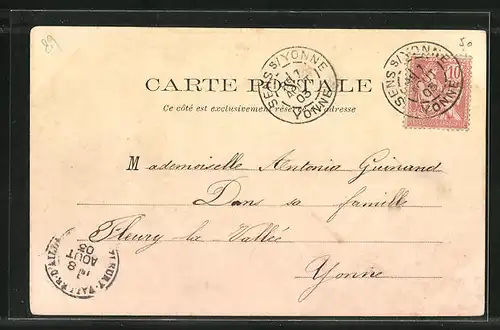 89
50
SENS S/YONNE
AOUT
03
YONNE
SENS S/YONNE
AOUT
03
YONNE
10
CARTE POSTALE
Ce côté est exclusivement réservé à l'adresse
Mademoiselle Antonia Guinand
Dans sa famille
Fleury la Vallée
Yonne
8
AOUT
03